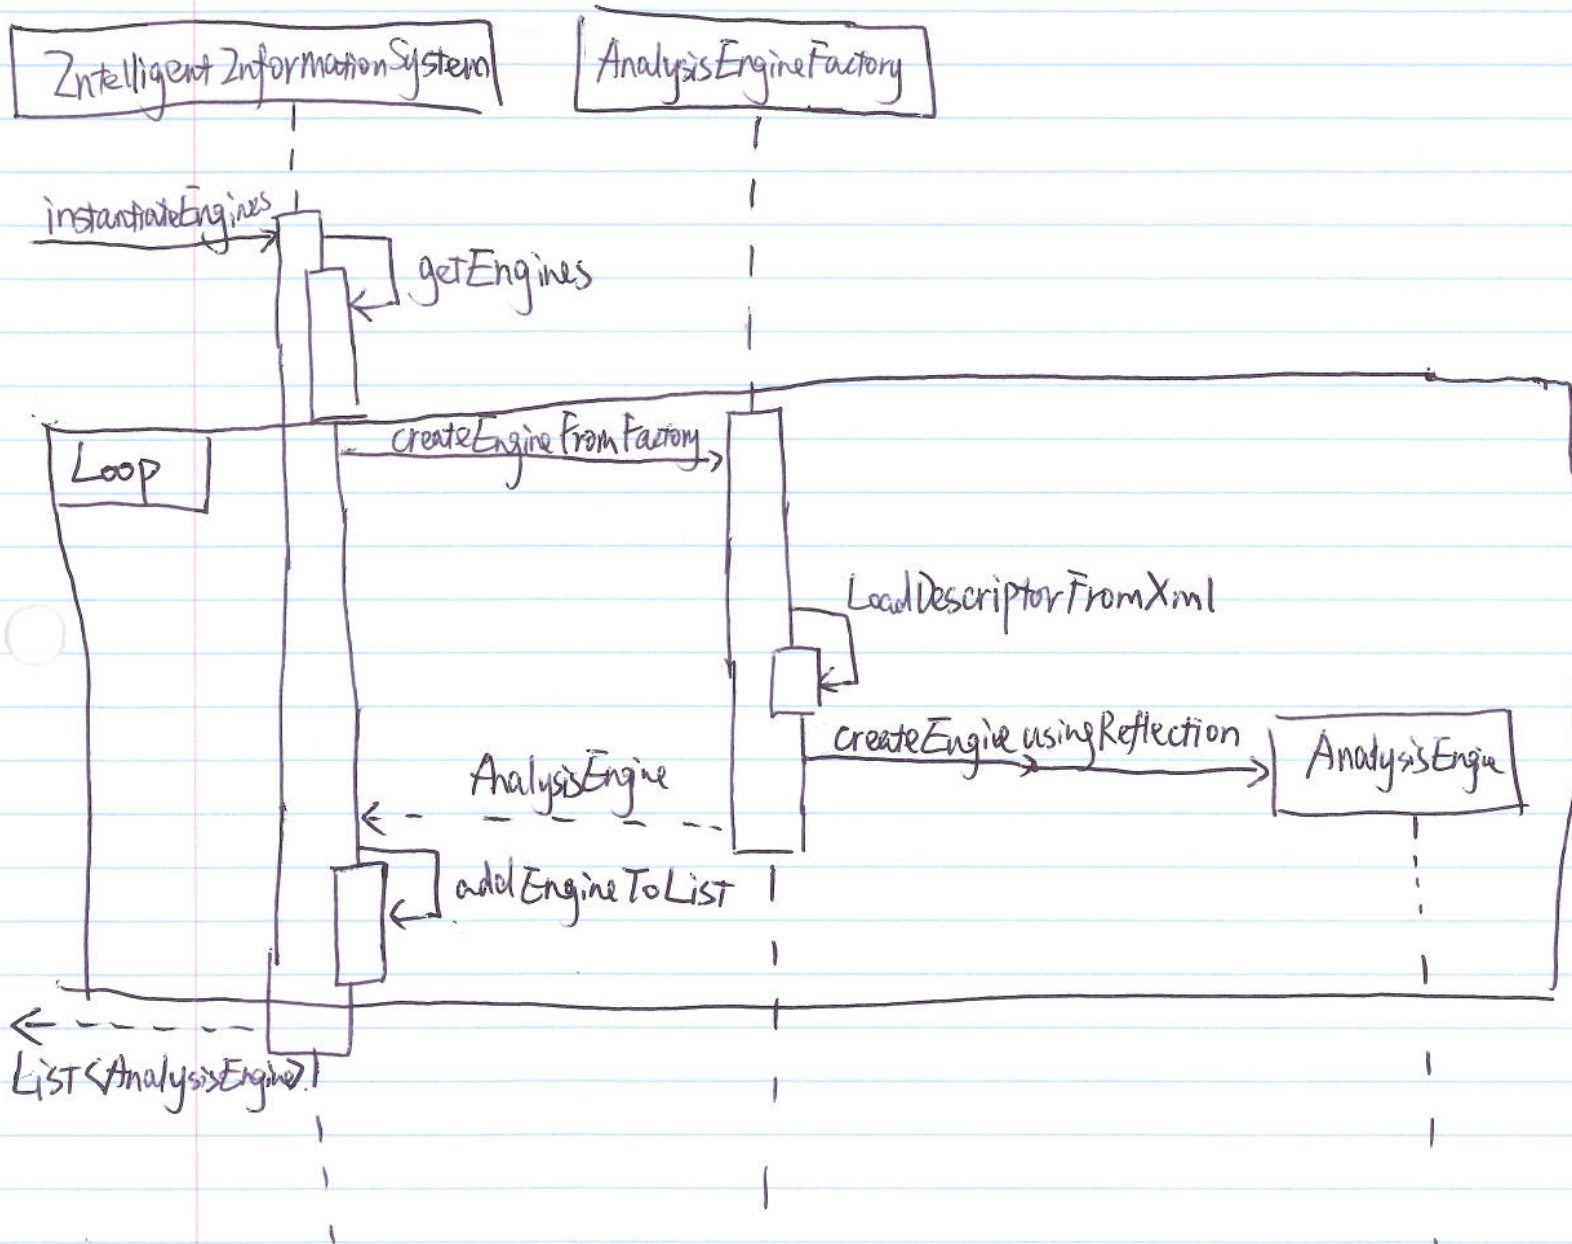 IntelligentInformationSystem
AnalysisEngineFactory
instantiateEngines
getEngines
createEngineFromFactory
Loop
LoadDescriptorFromXml
createEngineusingReflection
AnalysisEngine
AnalysisEngine
addEngineToList
List<AnalysisEngine>